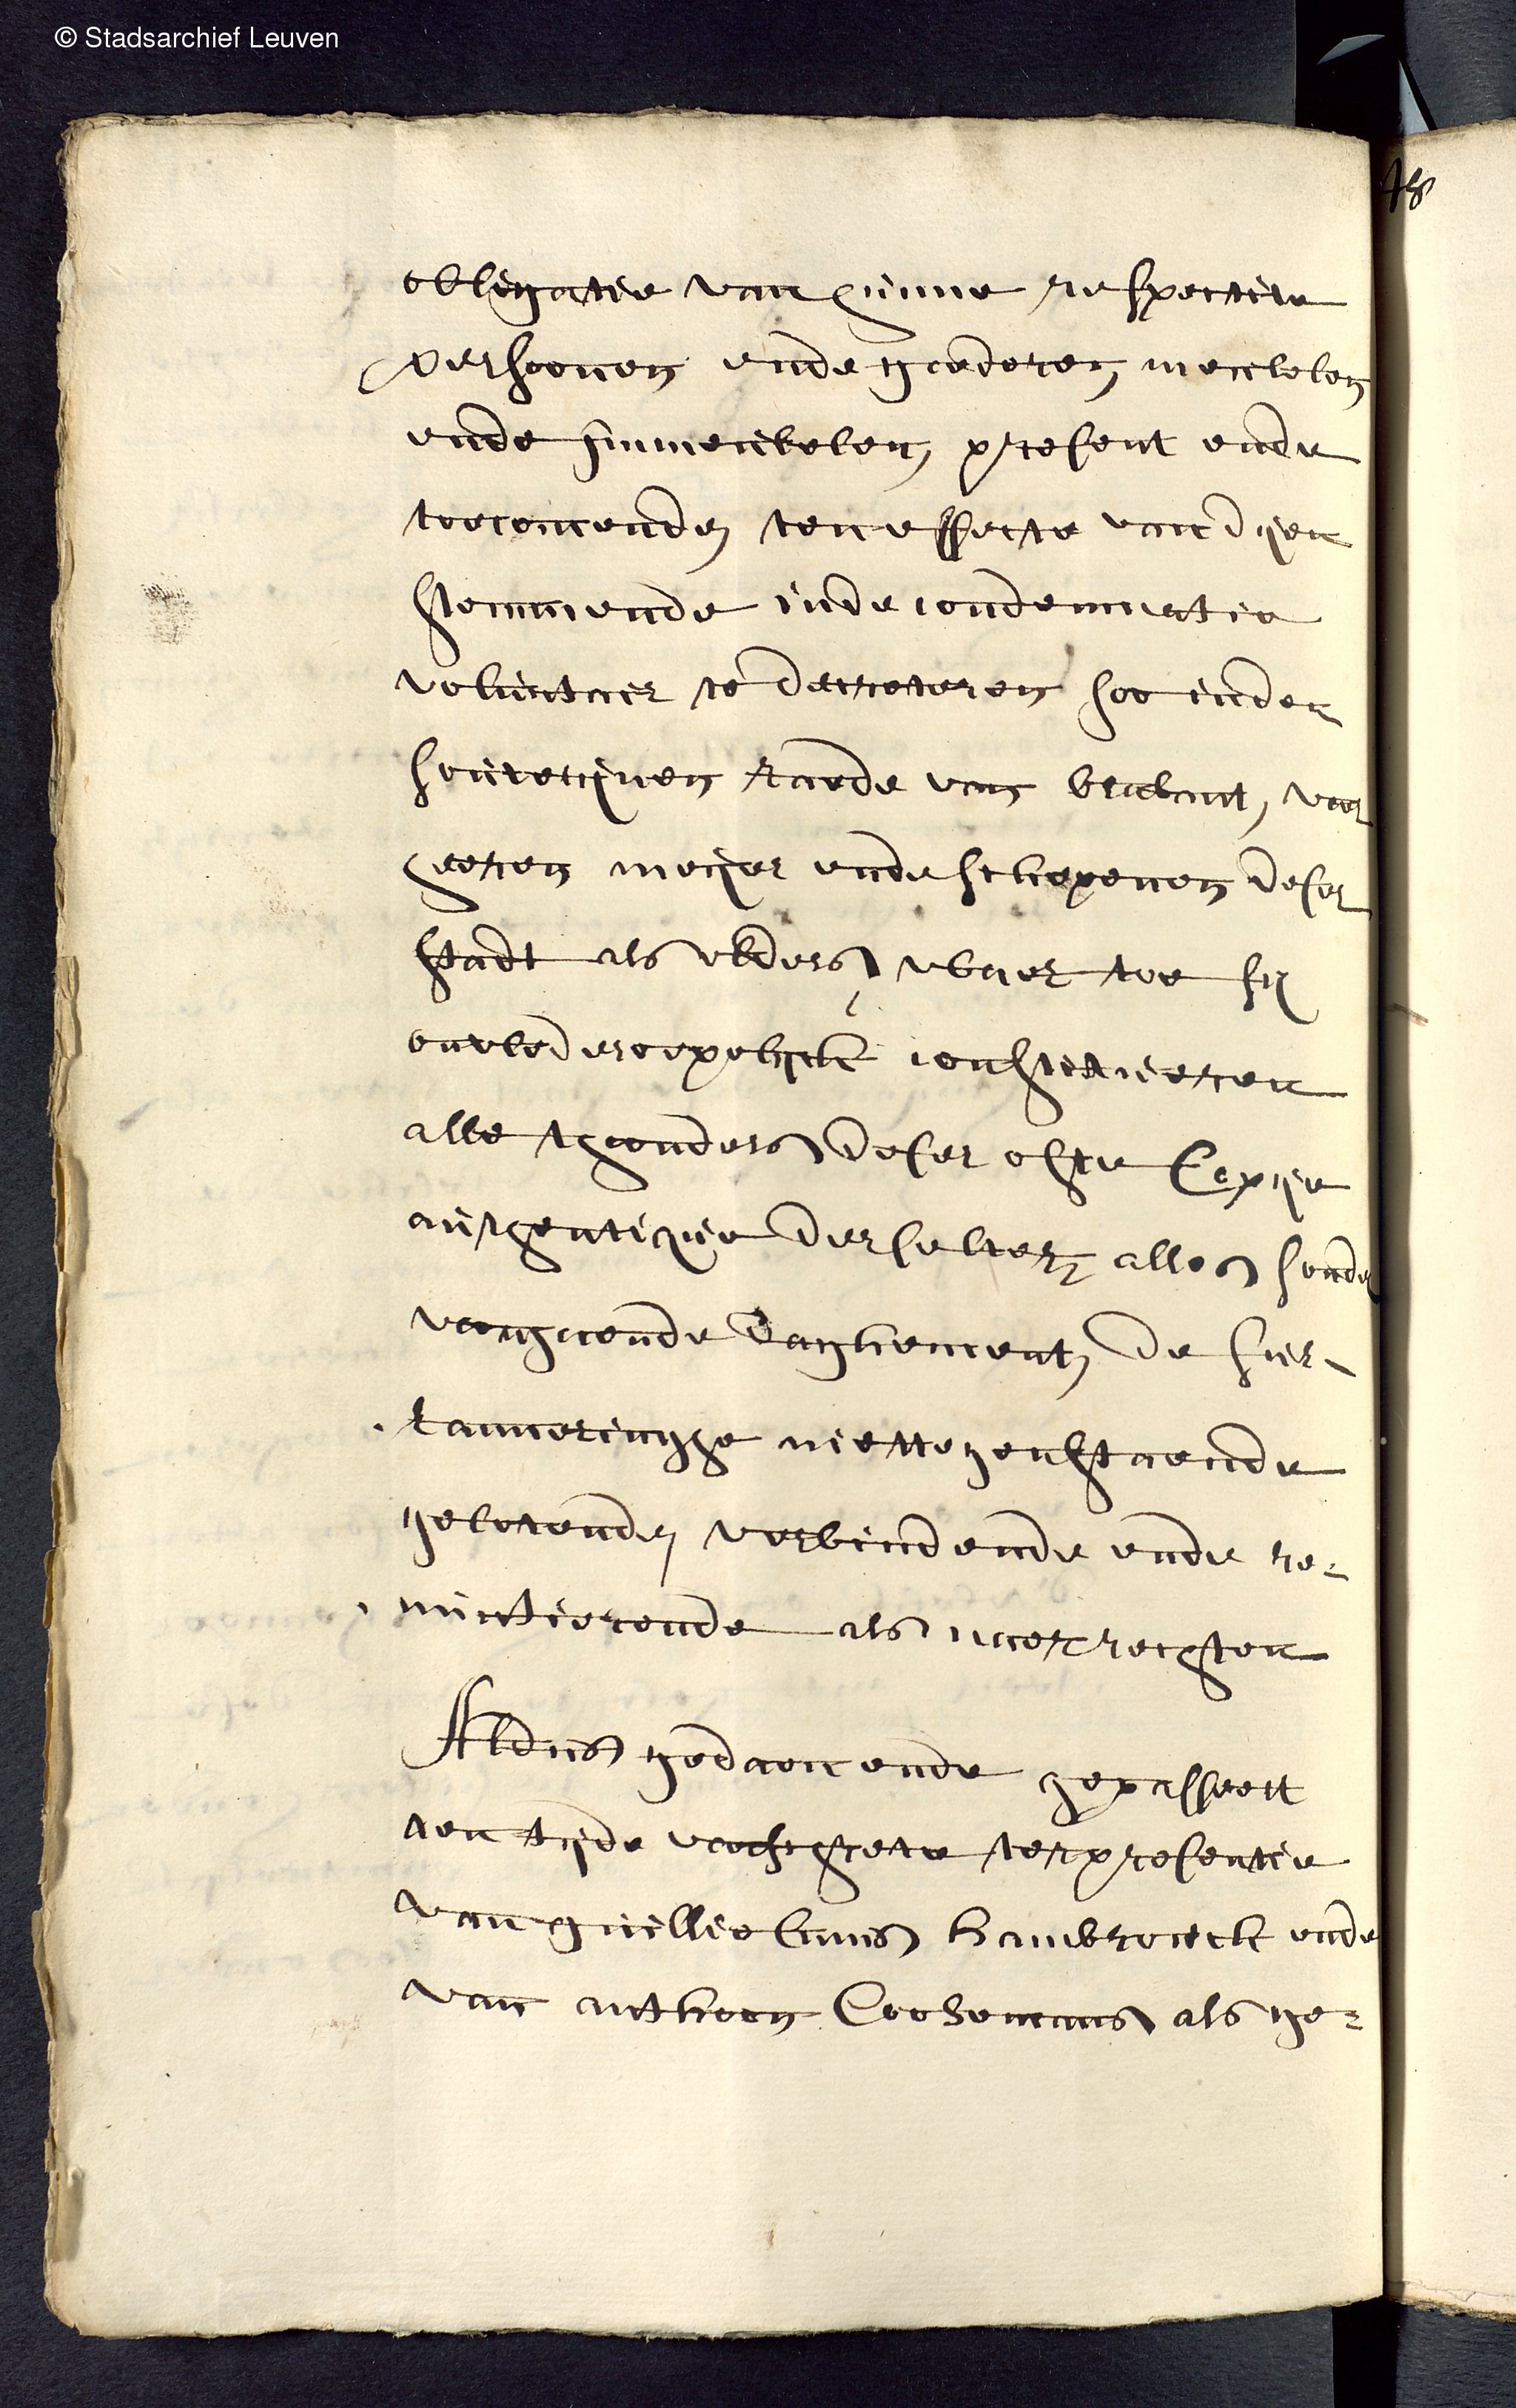 © Stadsarchief Leuven
48
obligatie van hunne respective
persoonen ende goederen meubelen
ende immeubelen, present ende
toecomende ten effecte van dijen
stemmende inde condemnatie
voluntair te decreteren soo inden
souverijnen raede van brabant, voor
heeren meijer ende schepenen deser
stadt als elders, waer toe sij
onwederroepelijck constitueren
alle thoonders deser ofte Copije
authenticque derselver, alles sonder
voorgaende daghement, de sur-
ranneringhe niettegenstaende
gelovende, verbindende ende re-
nuntierende als naer rechten
Aldus gedaen ende gepasseert
ten tijde voorschreven ter presentie
van guillielmus hambroeck ende
van anthoon Coosemans als ge-